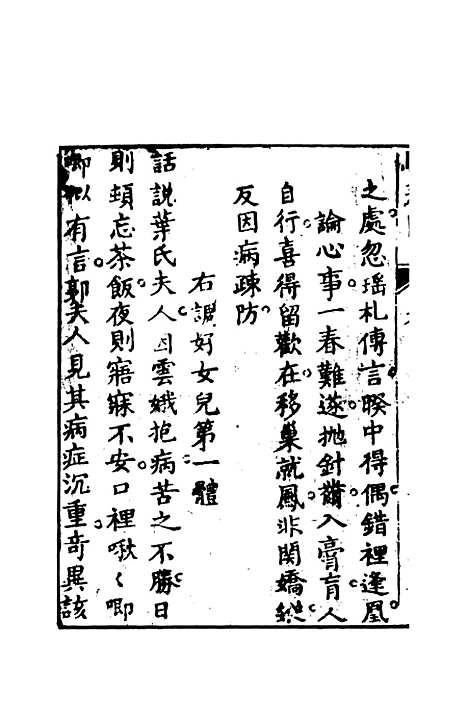 之處忽瑶札傳言暌中得偶錯裡逢凰
論心事一春難遂抛針黹入膏肓人
自行喜得留歡在移巢就鳳非関嬌縱
反因病疎防
右調好女兒第一體
話說葉氏夫人因雲娥抱病苦之不勝日
則頓忘茶飯夜則寤寐不安口裡啾〱唧
唧似有言郭夫人見其病症沉重奇異該